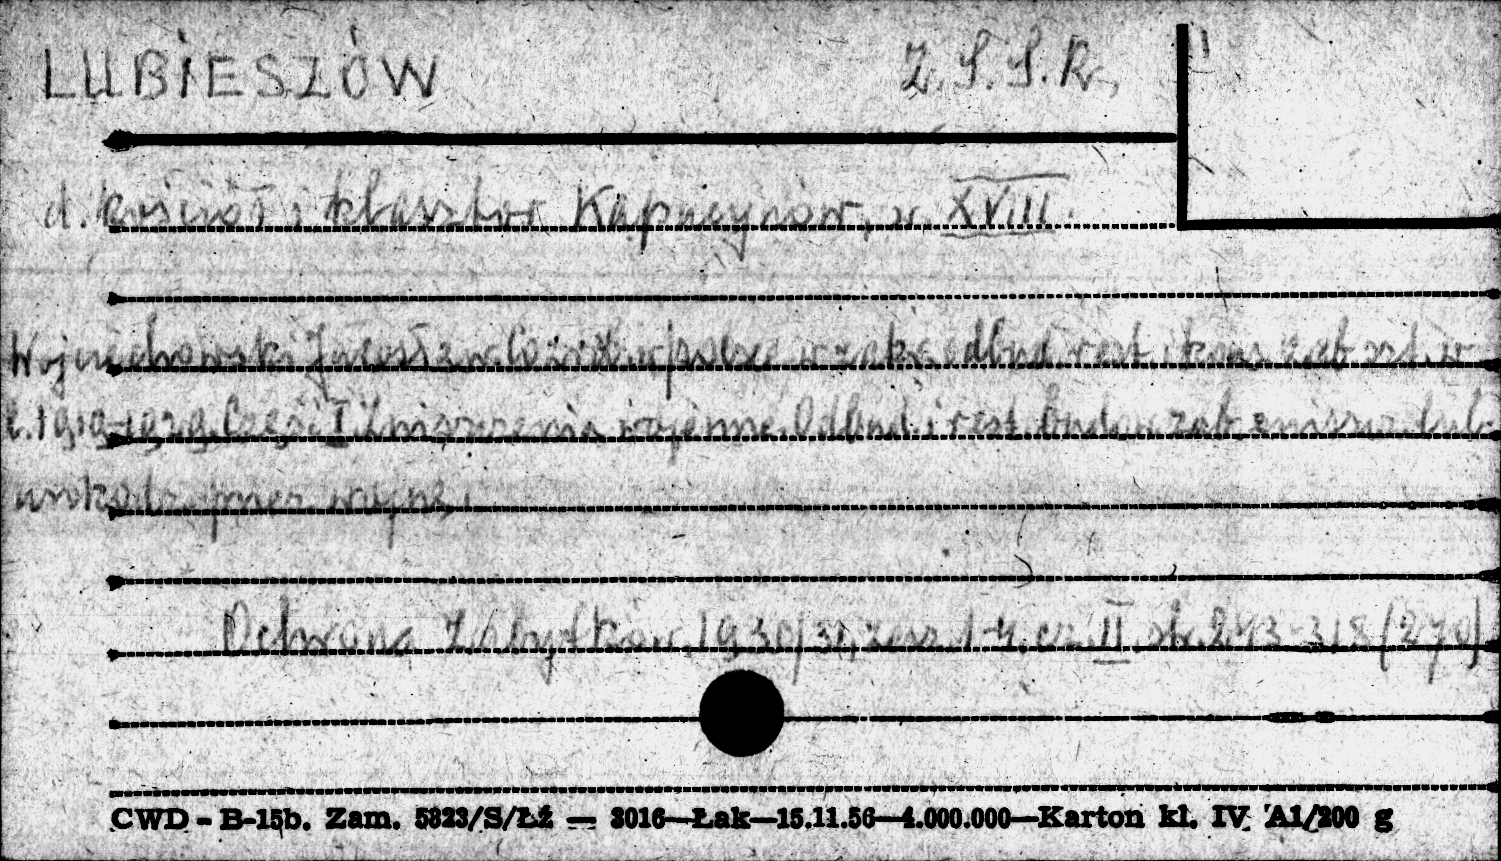 LUBIESZÓW Z.S.S.R.
d. kościół i klasztor Kapucynów, w. XVIII.
Wojciechowski Jarosław Cośmy w polsce w zakr. odbud. rest. i kons. zab. szt. w
l. 1919-1929. Część I Zniszczenia wojenne. Odbud. i rest. budow. zab. zniszcz. lub
uszkodz. przez wojnę.
Ochrona Zabytków, 1930/31, zesz. 1-4, cz. II, str. 243-318 (270)
CWD - B-15b. Zam. 5323/S/Łź — 3016—Łak—15.11.56—4.000.000—Karton kl. IV A1/200 g